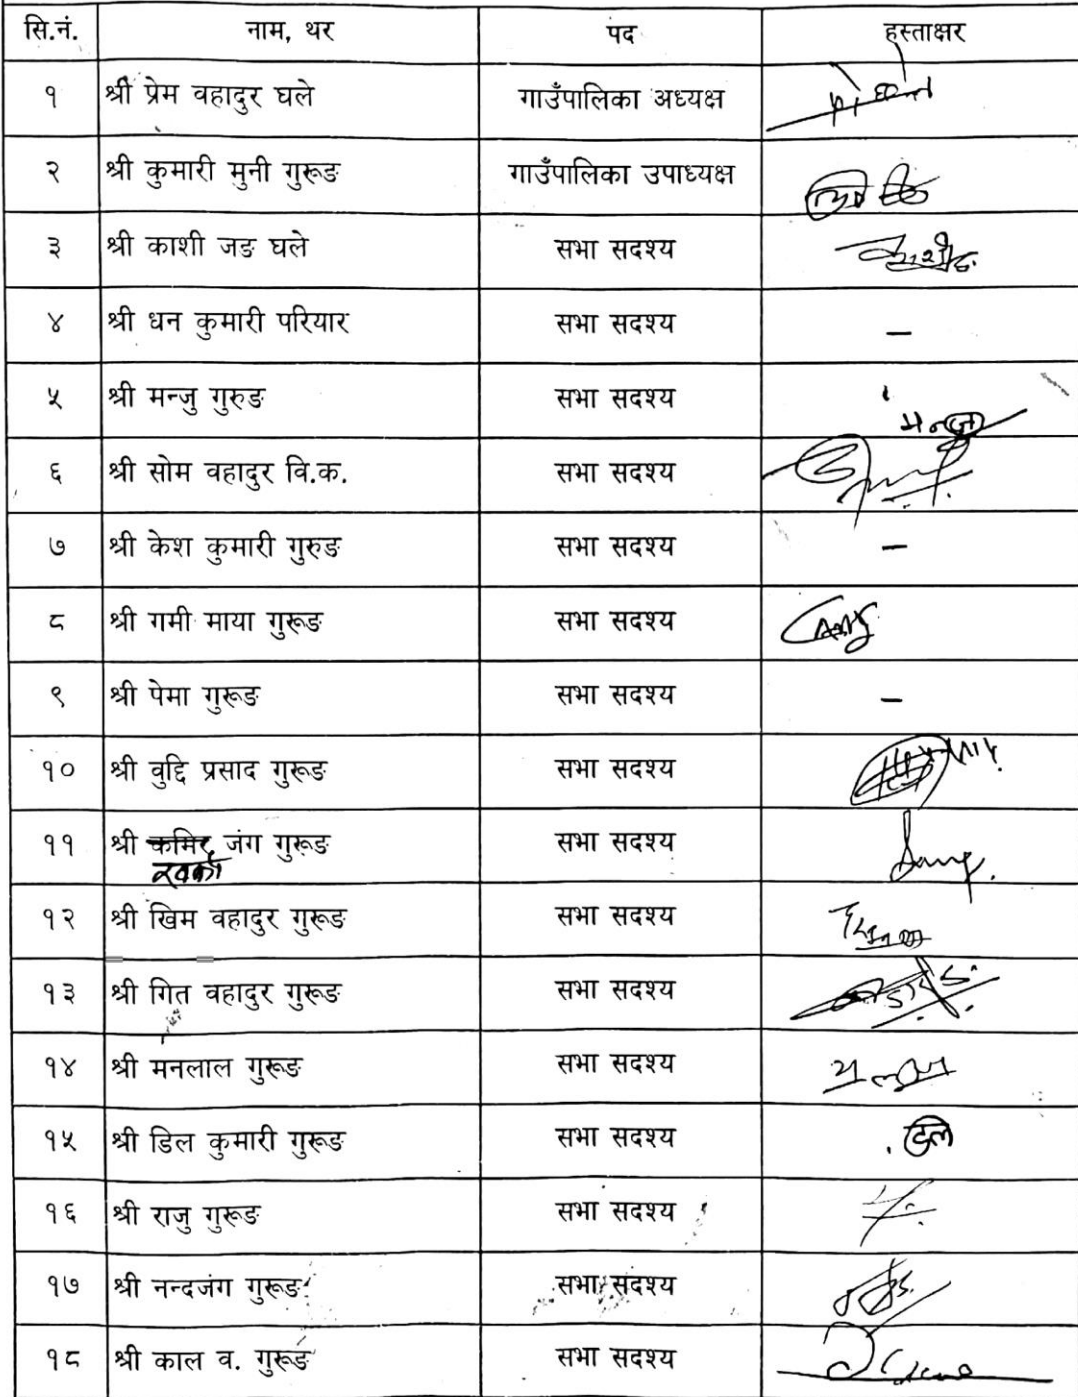 सि.नं. नाम, थर पद हस्ताक्षर
१ श्री प्रेम वहादुर घले गाउँपालिका अध्यक्ष
२ श्री कुमारी मुनी गुरूङ गाउँपालिका उपाध्यक्ष
३ श्री काशी जङ घले सभा सदश्य
४ श्री धन कुमारी परियार सभा सदश्य –
५ श्री मन्जु गुरुङ सभा सदश्य मन्जु
६ श्री सोम वहादुर वि.क. सभा सदश्य
७ श्री केश कुमारी गुरुङ सभा सदश्य –
८ श्री गमी माया गुरूङ सभा सदश्य
९ श्री पेमा गुरूङ सभा सदश्य –
१० श्री वुद्दि प्रसाद गुरूङ सभा सदश्य
११ श्री जंग गुरूङ सभा सदश्य
१२ श्री खिम वहादुर गुरूङ सभा सदश्य
१३ श्री गित वहादुर गुरूङ सभा सदश्य
१४ श्री मनलाल गुरूङ सभा सदश्य
१५ श्री डिल कुमारी गुरूङ सभा सदश्य
१६ श्री राजु गुरूङ सभा सदश्य
१७ श्री नन्दजंग गुरूङ सभा सदश्य
१८ श्री काल व. गुरूङ सभा सदश्य